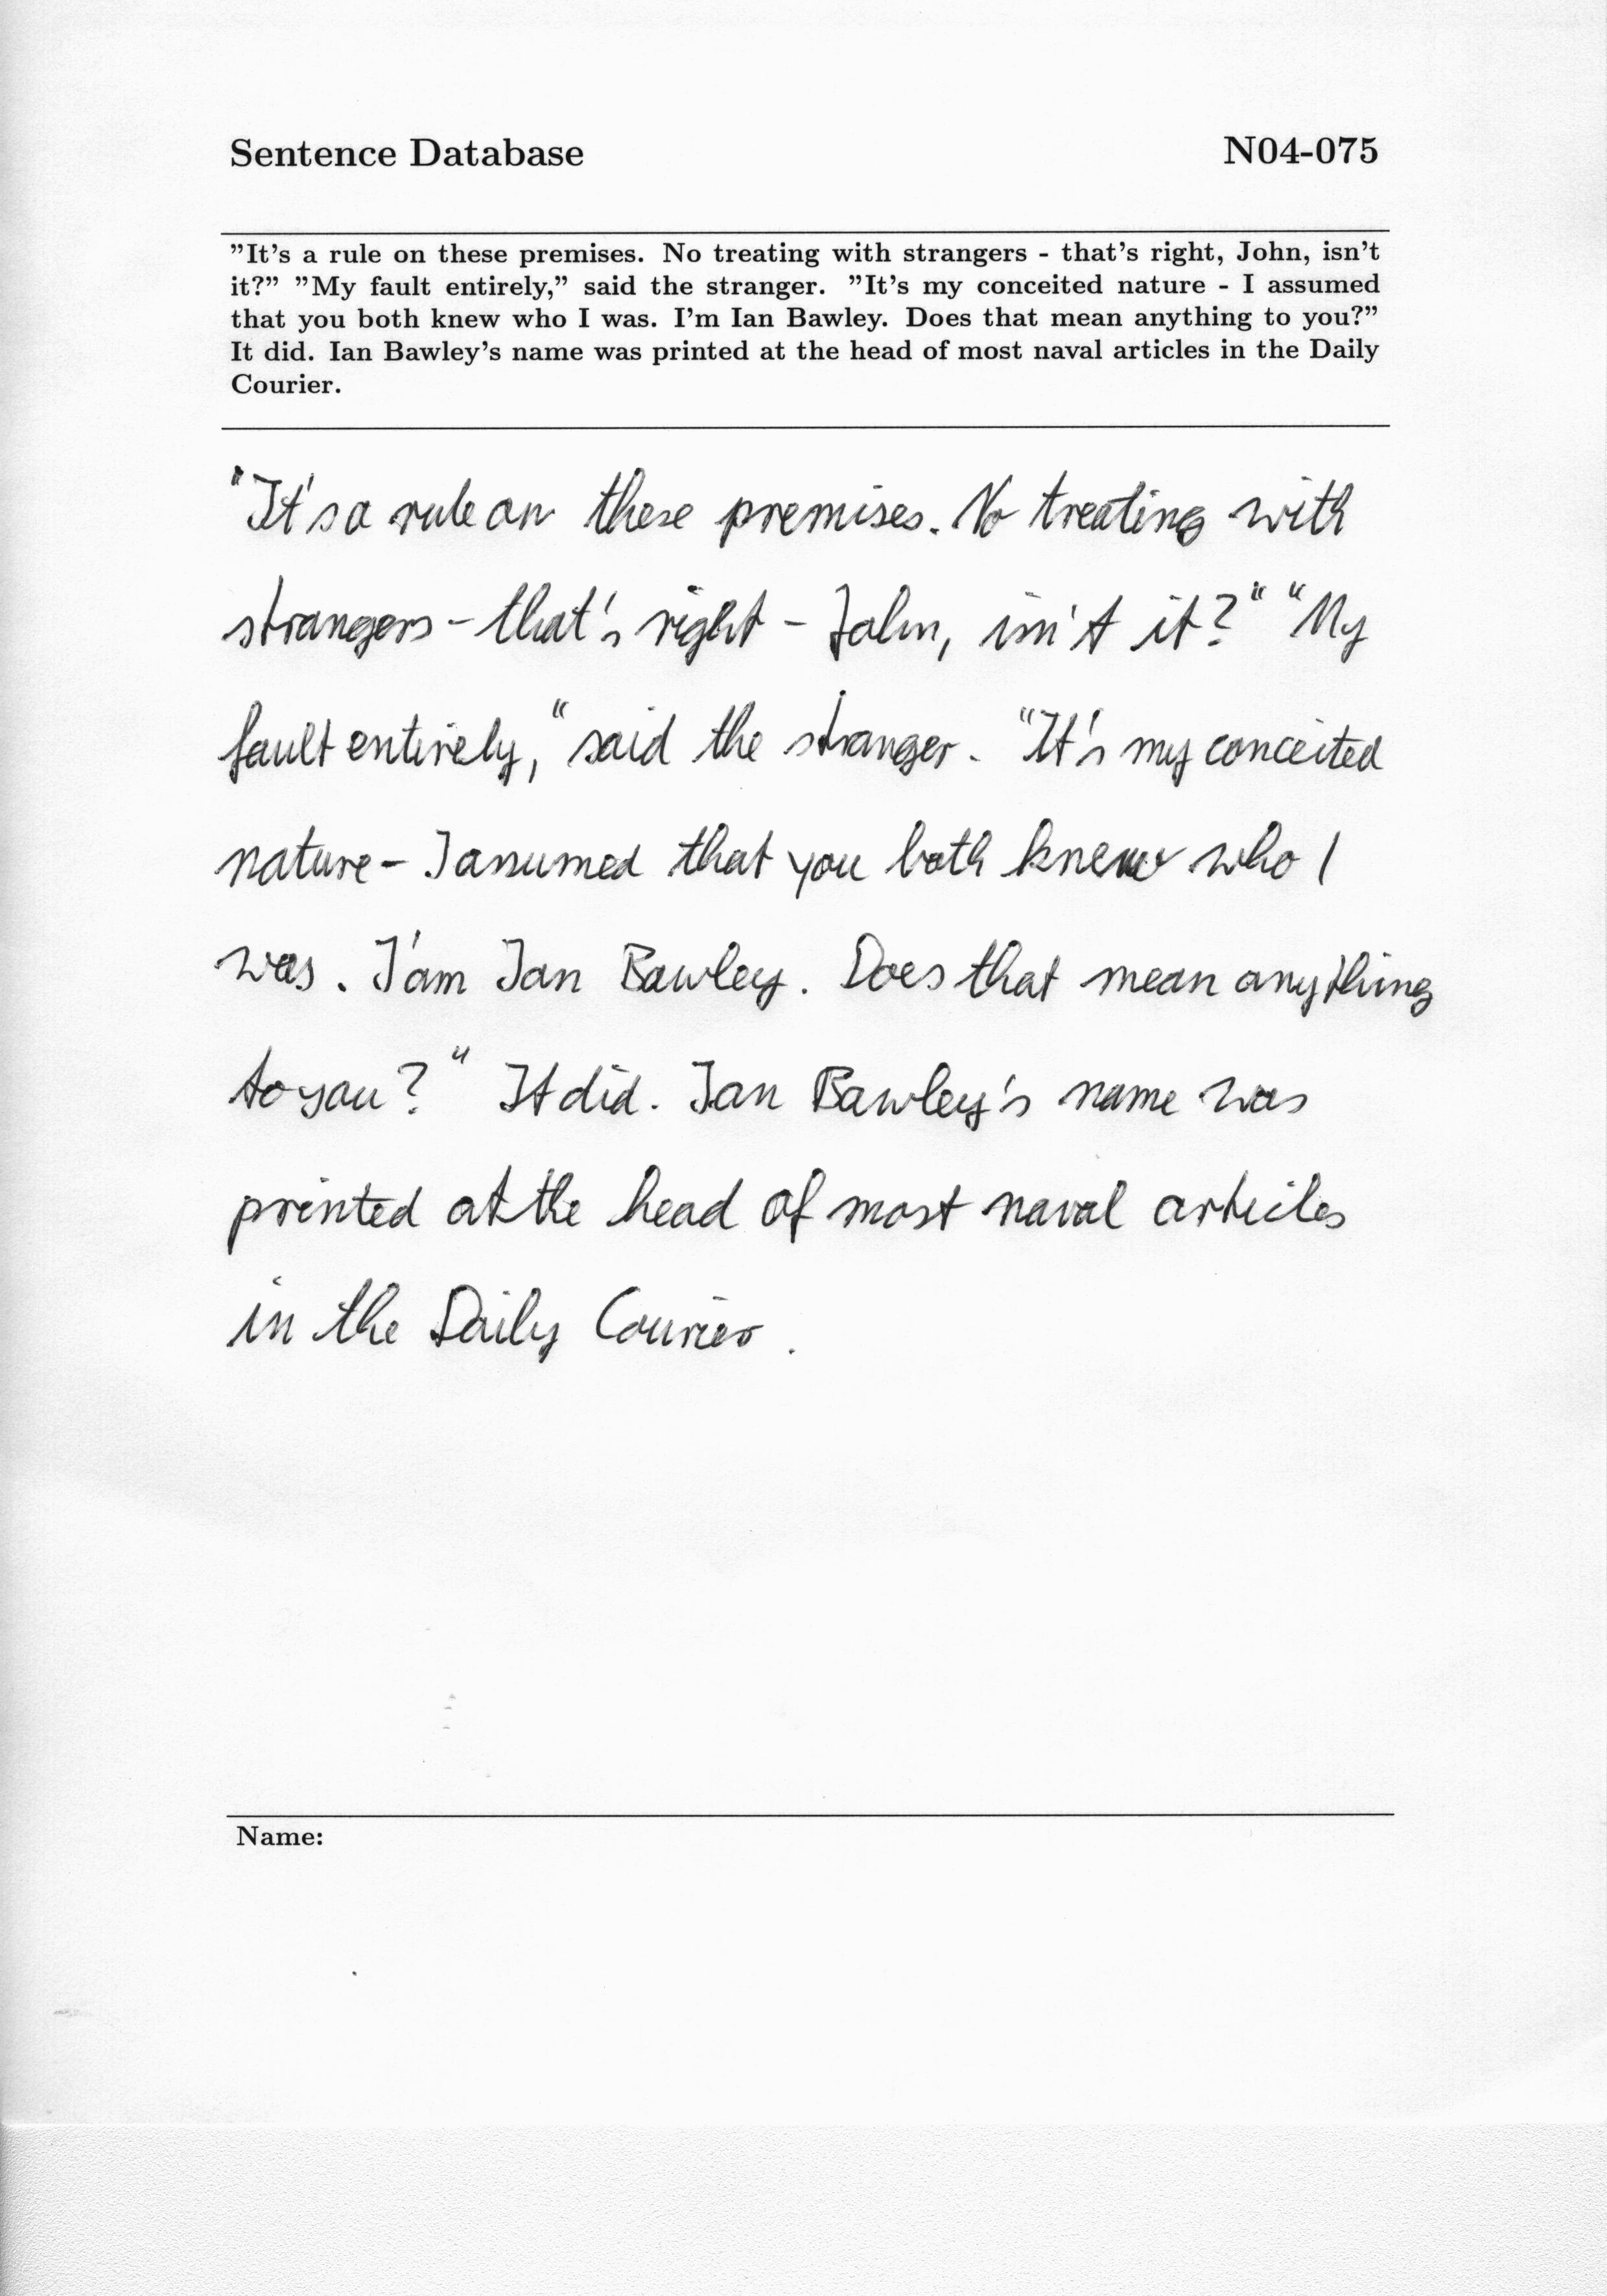 Sentence Database N04-075
"It's a rule on these premises. No treating with strangers - that's right, John, isn't
it?" "My fault entirely," said the stranger. "It's my conceited nature - I assumed
that you both knew who I was. I'm Ian Bawley. Does that mean anything to you?"
It did. Ian Bawley's name was printed at the head of most naval articles in the Daily
Courier.
"It's a rule on these premises. No treating with
strangers - that's right - John, isn't it?" "My
fault entirely," said the stranger. "It's my conceited
nature - I assumed that you both knew who I
was. I'am Ian Bawley. Does that mean anything
to you?" It did. Ian Bawley's name was
printed at the head of most naval articles
in the Daily Courier.
Name: